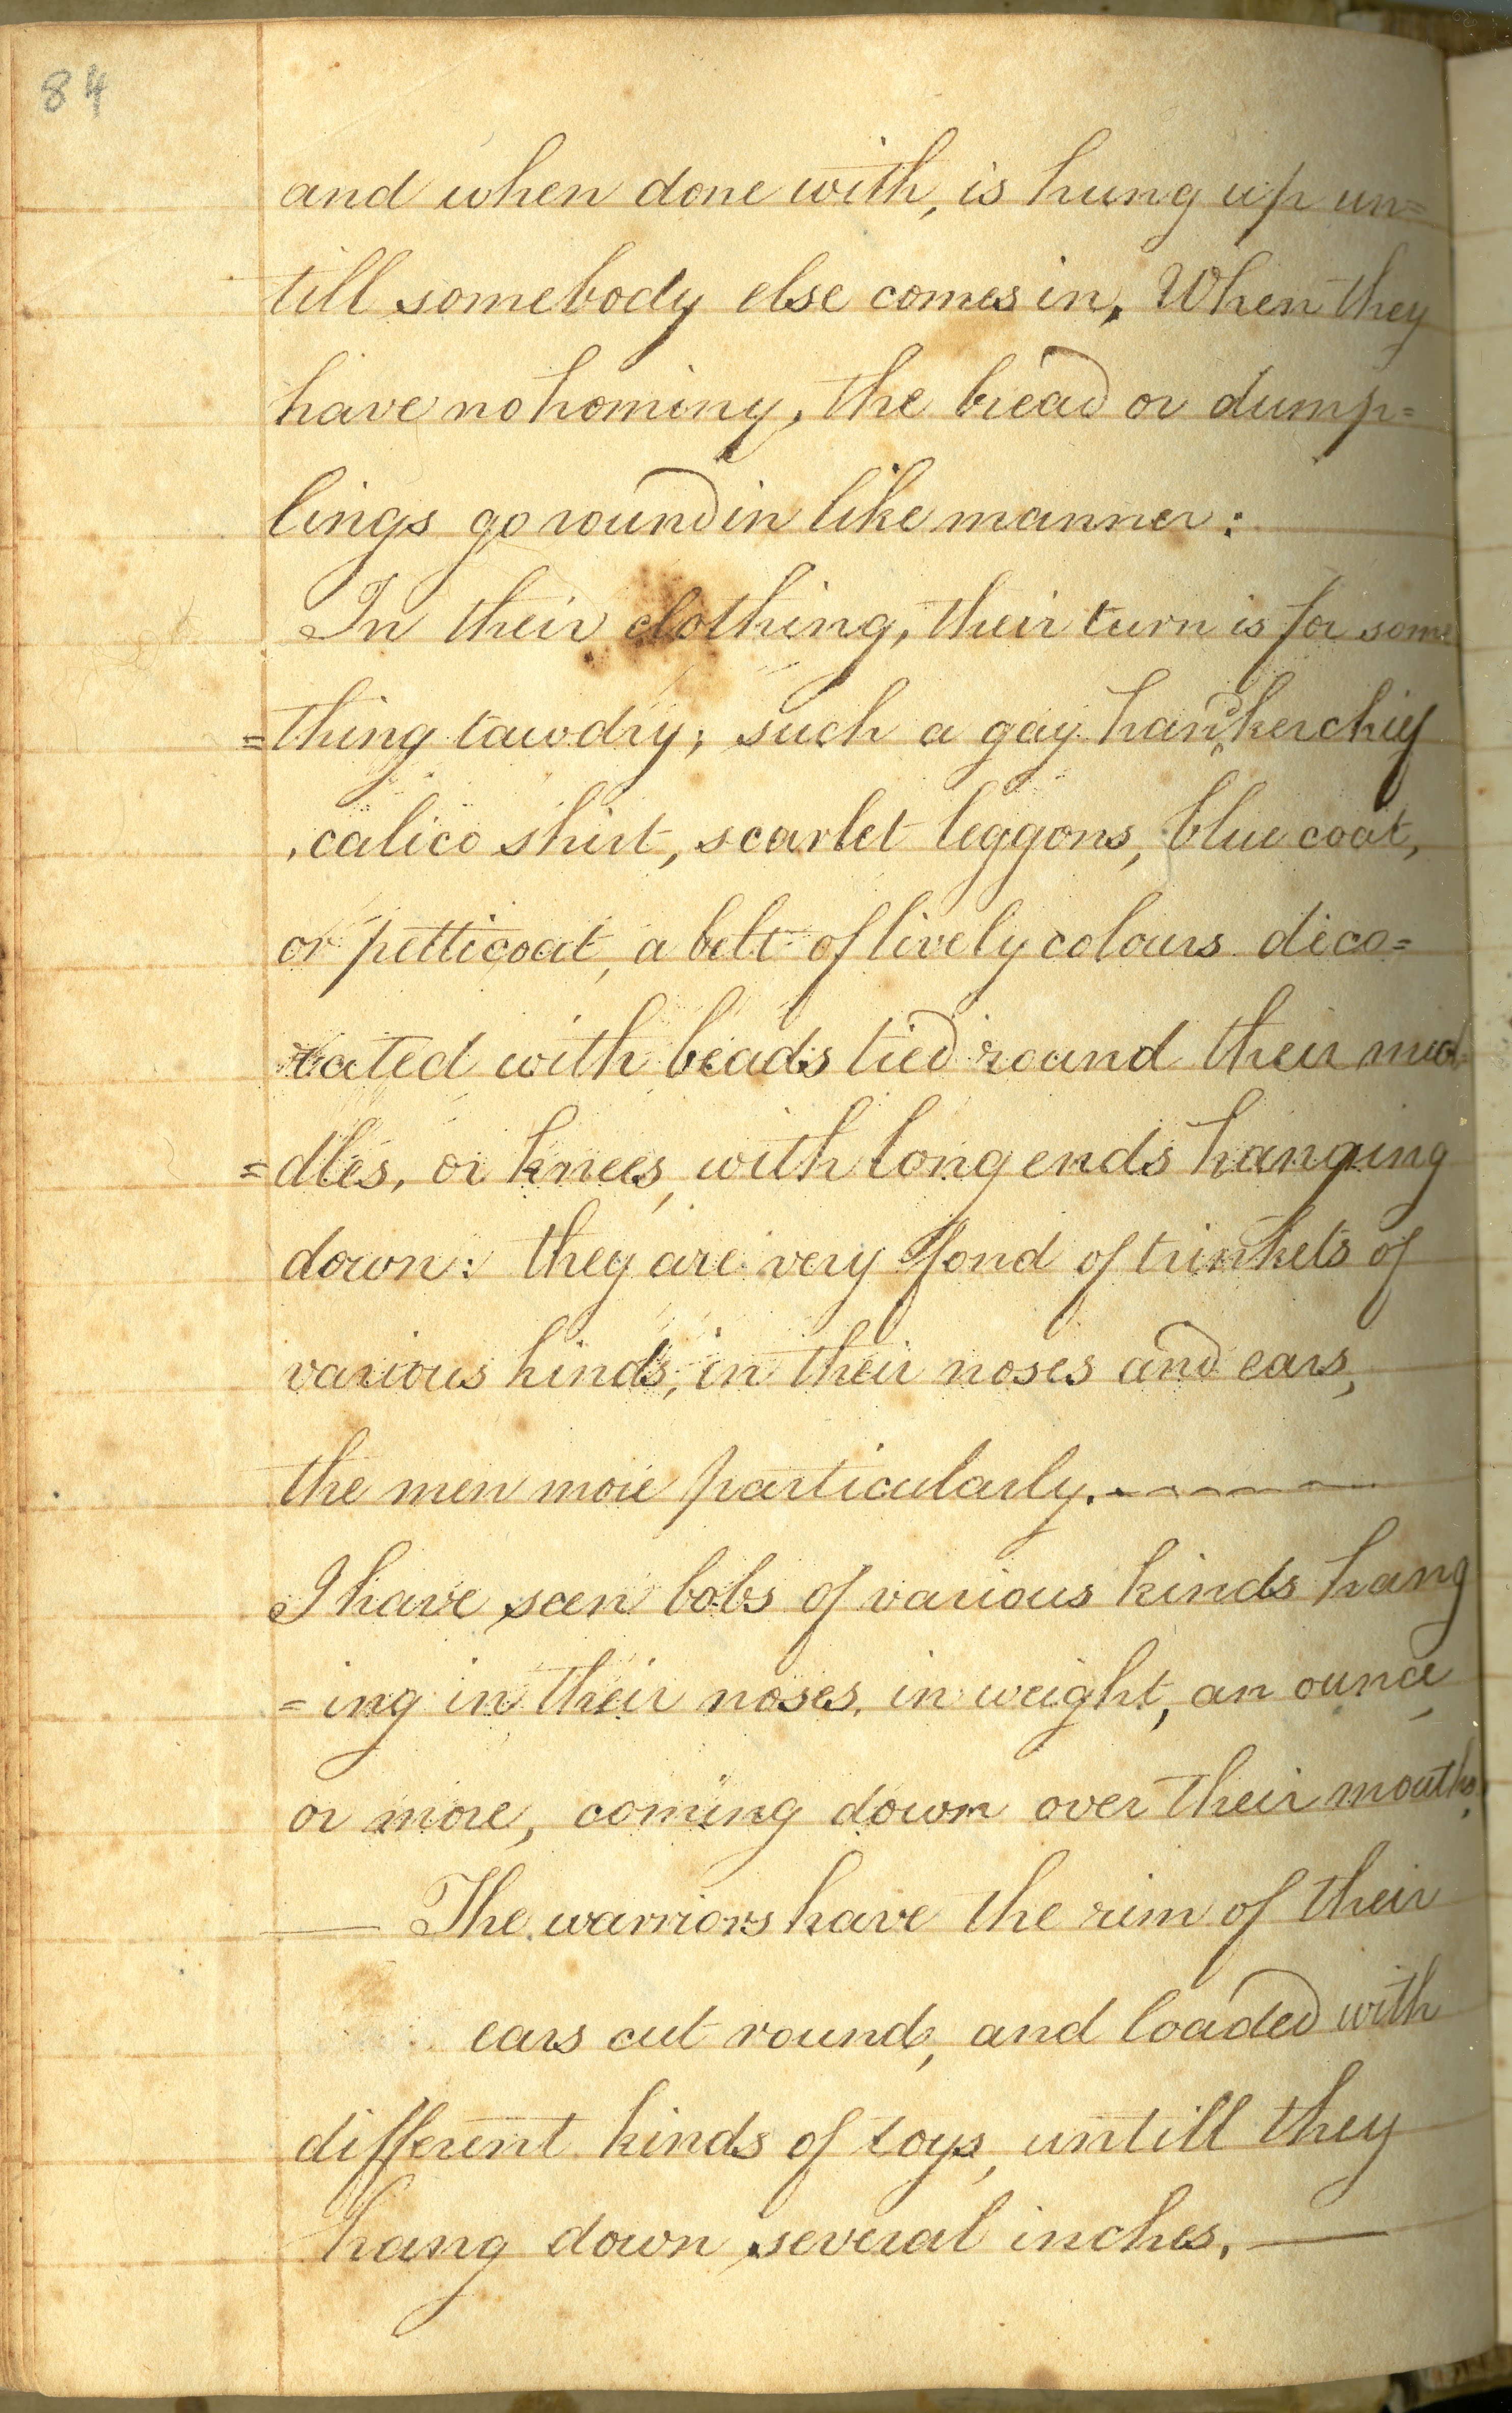 84
and when done with, is hung up un=
till somebody else comes in. When they
have no hominy, the bread or dump=
lings go round in like manner:
In their clothing, their turn is for some
=thing tawdry; such a gay handkerchief
, calico shirt, scarlet leggons, blue coat,
or petticoat, a belt of lively colours deco=
rated with beads tied round their mid
=dles, or knees, with long ends hanging
down: they are very fond of trinkets of
various kinds, in their noses and ears,
the men more particularly. ———
I have seen bobs of various kinds hang
=ing in their noses, in weight, an ounce
or more, coming down over their mouths.
— The warriors have the rim of their
ears cut round, and loaded with
different kinds of toys, untill they
hang down several inches. —